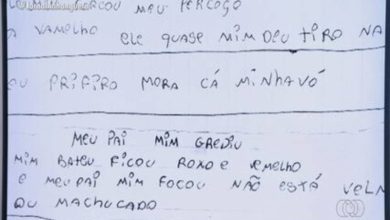 MEU PESCOÇO
VAMELHO ELE QUASE MIM DEU TIRO NA
PRIFIRO MORA CÁ MINHAVÓ
MEU PAI MIM GREDIU
MIM BATEU FICOU ROXO E VEMELHO
E MEU PAI MIM FOCOU NÃO ESTÁ
OU MACHUCADO